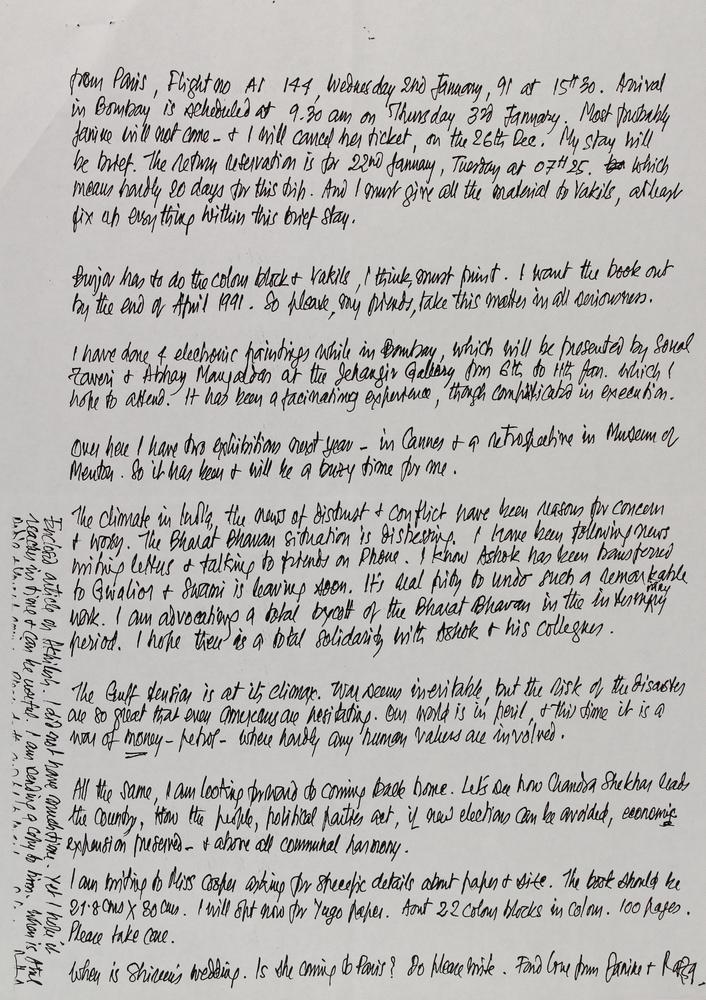 from Paris, Flight no AI 144, Wednesday 2nd January, 91 at 15H30. Arrival
in Bombay is scheduled at 9.30 am on Thursday 3rd January. Most probably
Janine will not come - & I will cancel her ticket, on the 26th Dec. My stay will
be brief. The return reservation is for 22nd January, Tuesday at 07H25. which
means hardly 20 days for this trip. And I must give all the material to Vakils, atleast
fix up everything within this brief stay.
Burjor has to do the colour blocks & Vakils, I think, must print. I want the book out
by the end of April 1991. So please, my friends, take this matter in all seriousness.
I have done 4 electronic paintings while in Bombay, which will be presented by Sonal
Zaveri & Abhay Mangaldas at the Jehangir Gallery from 6th to 11th Jan. which I
hope to attend. It has been a facinating experience, though complicated in execution.
Over here I have two exhibitions next year - in Cannes & a retrospective in Museum of
Menton. So it has been & will be a buzy time for me.
The climate in India, the news of distrust & conflict have been reasons for concern
& worry. The Bharat Bhavan situation is distressing. I have been following news
writing letters & talking to friends on Phone. I know Ashok has been transferred
to Gwalior & Swami is leaving soon. It's real pity to undo such a remarkable
work. I am advocating a total boycott of the Bharat Bhavan in the intermediary
period. I hope there is a total solidarity with Ashok & his collegues.
The Gulf tension is at its climax. War seems inevitable, but the risk of the disaster
are so great that even americans are hesitating. Our world is in peril, & this time it is a
war of money - petrol - where hardly any human values are involved.
All the same, I am looking forward to coming back home. Let's see how Chandra Shekhar leads
the country, How the people, political parties act, if new elections can be avoided, economic
expension preserved - & above all communal harmony.
I am writing to Miss Cooper asking for specific details about paper & size. The book should be
21.8 cms X 30 cms. I will opt now for Yugo paper. Aout 22 colour blocks in colour. 100 pages.
Please take care.
When is Shireen's wedding. Is she coming to Paris? Do please write. Fond love from Janine & Raza.
Enclosed article on Akhilesh. I did not have another one. Yet I hope it
reaches in time & can be useful. I am sending a copy to him. When is Atul